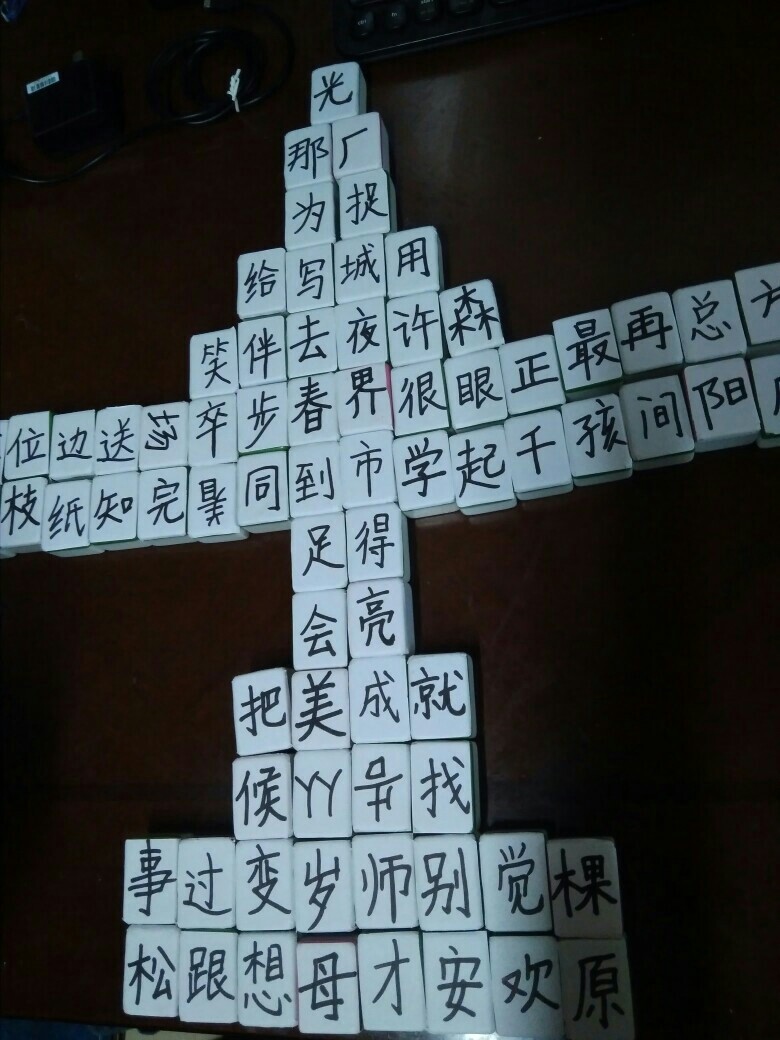 光
那厂
为捉
给写城用
笑伴去夜许森
位边送场卒步春界很眼正最再总方
枝纸知完同到市学起千孩间阳
足得
会亮
把美成就
候丫丫号找
事过变岁师别觉棵
松跟想母才安欢原